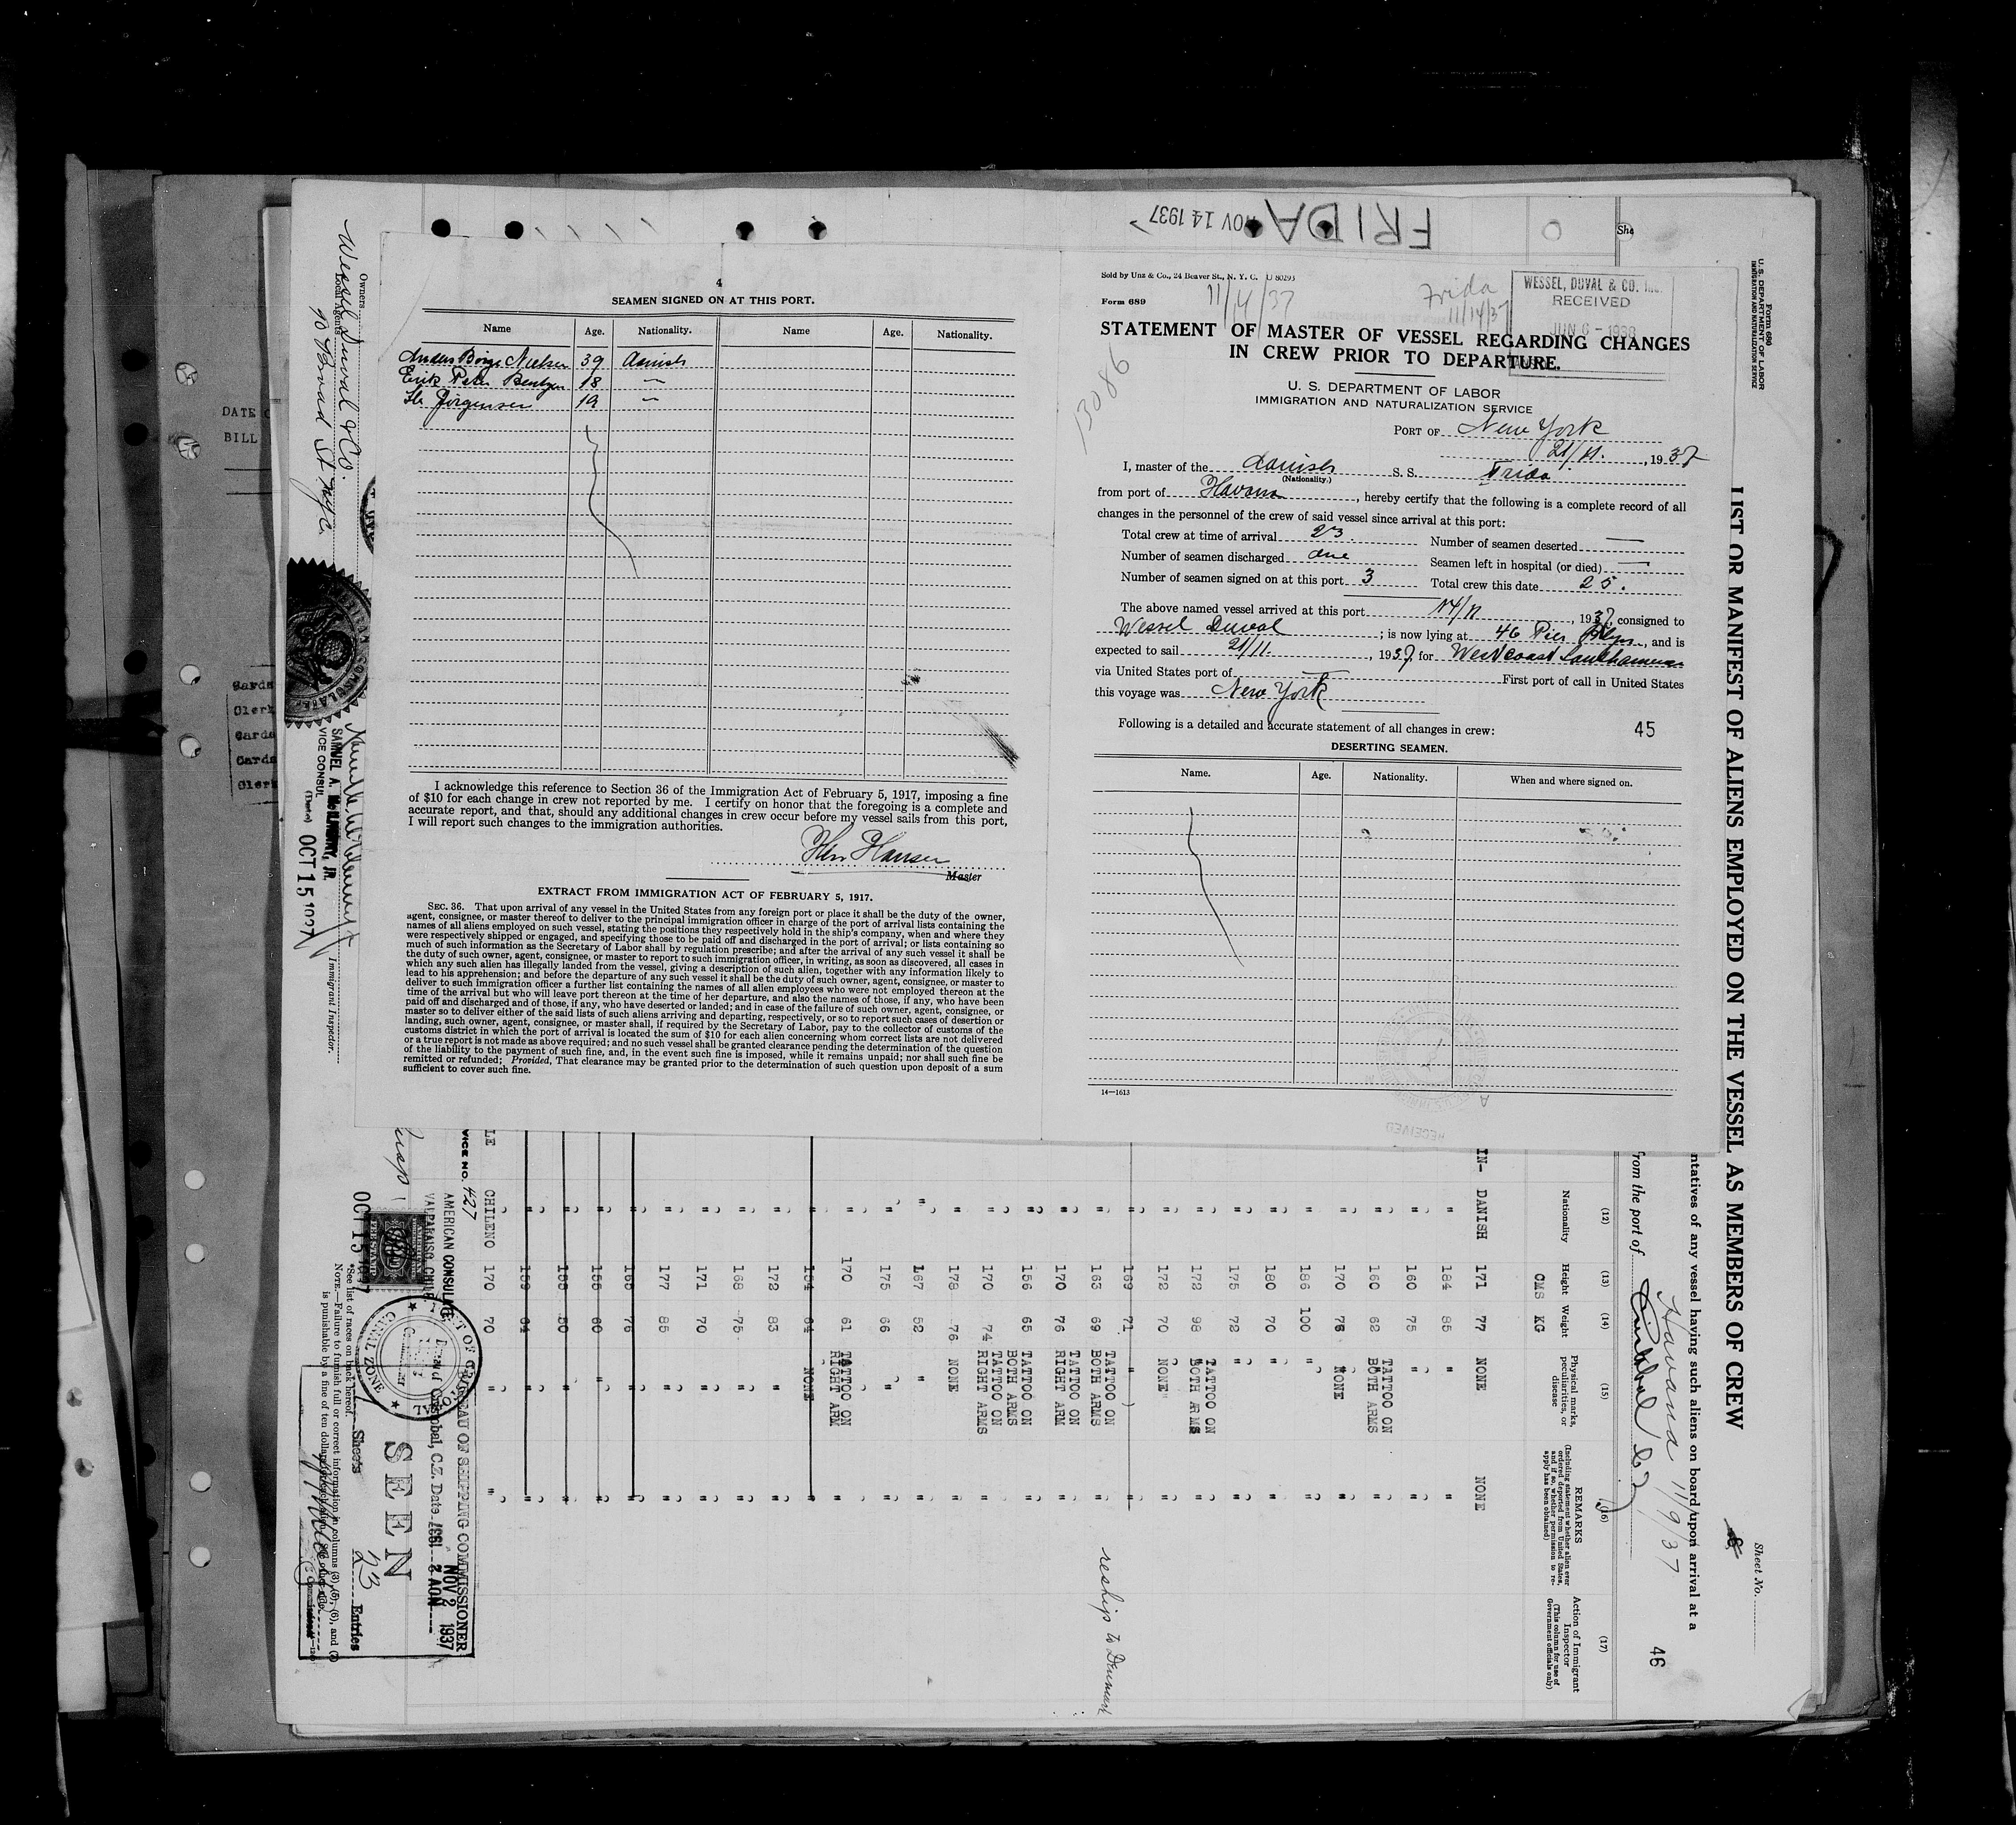 FRIDA NOV 14 1937
4
SEAMEN SIGNED ON AT THIS PORT.
Name Age. Nationality. Name Age. Nationality.
Anders Börge Nielsen 39 danish
Erik Peter Bentzen 18 "
Ib Jörgensen 19 "
I acknowledge this reference to Section 36 of the Immigration Act of February 5, 1917, imposing a fine
of $10 for each change in crew not reported by me. I certify on honor that the foregoing is a complete and
accurate report, and that, should any additional changes in crew occur before my vessel sails from this port,
I will report such changes to the immigration authorities.
Hansen
Master
EXTRACT FROM IMMIGRATION ACT OF FEBRUARY 5, 1917.
SEC. 36. That upon arrival of any vessel in the United States from any foreign port or place it shall be the duty of the owner,
agent, consignee, or master thereof to deliver to the principal immigration officer in charge of the port of arrival lists containing the
names of all aliens employed on such vessel, stating the positions they respectively hold in the ship's company, when and where they
were respectively shipped or engaged, and specifying those to be paid off and discharged in the port of arrival; or lists containing so
much of such information as the Secretary of Labor shall by regulation prescribe; and after the arrival of any such vessel it shall be
the duty of such owner, agent, consignee, or master to report to such immigration officer, in writing, as soon as discovered, all cases in
which any such alien has illegally landed from the vessel, giving a description of such alien, together with any information likely to
lead to his apprehension; and before the departure of any such vessel it shall be the duty of such owner, agent, consignee, or master to
deliver to such immigration officer a further list containing the names of all alien employees who were not employed thereon at the
time of the arrival but who will leave port thereon at the time of her departure, and also the names of those, if any, who have been
paid off and discharged and of those, if any, who have deserted or landed; and in case of the failure of such owner, agent, consignee, or
master so to deliver either of the said lists of such aliens arriving and departing, respectively, or so to report such cases of desertion or
landing, such owner, agent, consignee, or master shall, if required by the Secretary of Labor, pay to the collector of customs of the
customs district in which the port of arrival is located the sum of $10 for each alien concerning whom correct lists are not delivered
or a true report is not made as above required; and no such vessel shall be granted clearance pending the determination of the question
of the liability to the payment of such fine, and, in the event such fine is imposed, while it remains unpaid; nor shall such fine be
remitted or refunded; Provided, That clearance may be granted prior to the determination of such question upon deposit of a sum
sufficient to cover such fine.
Sold by Unz & Co., 24 Beaver St., N. Y. C. U 80293
Form 689
11/4/37
Frida
11/14/37
WESSEL, DUVAL & CO. INC.
RECEIVED
JUN 6 - 1938
STATEMENT OF MASTER OF VESSEL REGARDING CHANGES
IN CREW PRIOR TO DEPARTURE.
U. S. DEPARTMENT OF LABOR
IMMIGRATION AND NATURALIZATION SERVICE
13086
PORT OF New York
21/11. , 1937
I, master of the danish S. S. Frida
(Nationality.)
from port of Havana , hereby certify that the following is a complete record of all
changes in the personnel of the crew of said vessel since arrival at this port:
Total crew at time of arrival 23. Number of seamen deserted —
Number of seamen discharged one Seamen left in hospital (or died) —
Number of seamen signed on at this port 3 Total crew this date 25.
The above named vessel arrived at this port 14/11 , 1937, consigned to
Wessel Duval ; is now lying at 46 Pier , and is
expected to sail 21/11. , 1937, for Westcoast Southamerica
via United States port of — First port of call in United States
this voyage was New York
Following is a detailed and accurate statement of all changes in crew: 45
DESERTING SEAMEN.
Name. Age. Nationality. When and where signed on.
14—1613
RECEIVED
Form 686
U. S. DEPARTMENT OF LABOR
IMMIGRATION AND NATURALIZATION SERVICE
LIST OR MANIFEST OF ALIENS EMPLOYED ON THE VESSEL AS MEMBERS OF CREW
Sheet No.
ntatives of any vessel having such aliens on board upon arrival at a
from the port of Cristobal CZ
Havana 11/9/37
46
(12) (13) (14) (15) (16) (17)
Nationality Height Weight Physical marks, peculiarities, or disease REMARKS Action of Immigrant Inspector
(Including statement whether alien ever ordered deported from United States, and if so, whether permission to reapply has been obtained)
(This column for use of Government officials only)
CMS KG
IN- DANISH 171 77 NONE NONE
" 184 85 " "
" 160 75 " "
" 160 62 TATTOO ON BOTH ARMS "
" 170 75 NONE "
" 186 100 " "
" 180 70 " "
" 175 72 " "
" 172 98 TATTOO ON BOTH ARMS "
" 172 70 NONE "
" 169 71 " "
" 163 69 TATTOO ON BOTH ARMS " reship to Denmark
" 170 76 TATTOO ON RIGHT ARM "
" 156 65 TATTOO ON BOTH ARMS "
" 170 74 TATTOO ON RIGHT ARMS "
" 178 76 NONE "
" 167 52 " "
" 175 66 " "
" 170 61 TATTOO ON RIGHT ARM "
" 154 64 NONE "
" 172 83 "
" 168 75 "
" 171 70 "
" 177 85 "
" 165 76 "
" 155 60 " "
" 155 50 "
" 159 64 "
LE CHILENO 170 70 " "
VICE NO. 427
AMERICAN CONSULATE
VALPARAISO, CHILE
OCT 15 1937
BUREAU OF SHIPPING COMMISSIONER
Port of Cristobal, C.Z. Date NOV 2 1937
SEEN
Sheets 23 Entries
CANAL ZONE
*See list of races on back hereof.
NOTE.—Failure to furnish full or correct information in columns (3), (5), (6), and (7)
is punishable by a fine of ten dollars
Owners
Local agents
Wessel Duval & Co.
Broad St NYC.
SAMUEL A. McILHENNY, JR.
VICE CONSUL
OCT 15 1937
Immigrant Inspector.
DATE
BILL
Garda
Clerk
Garda
Garda
Clerk